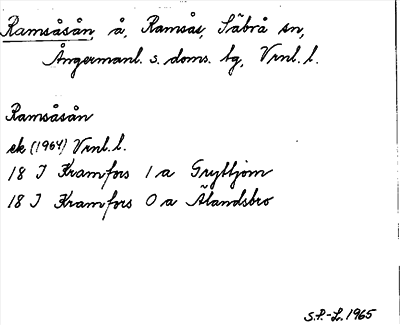 Ramsåsån, å, Ramsås, Säbrå sn,
Ångermanl. s. doms. tg, Vrnl. l.
Ramsåsån
ek (1964) Vrnl. l.
18 I Kramfors 1 a Gryttjom
18 I Kramfors 0 a Älandsbro
S.P.-L. 1965